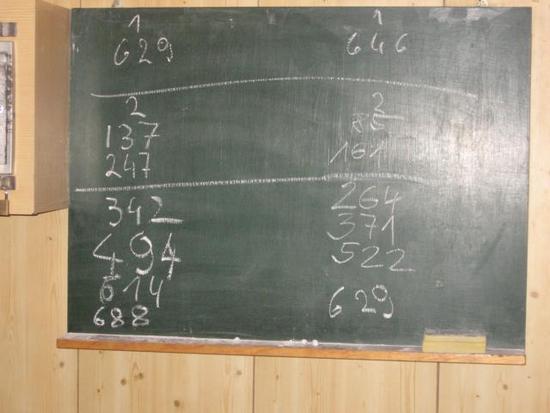 1 1
629 646
2 2
137 86
247 161
342 264
494 371
614 522
688 629